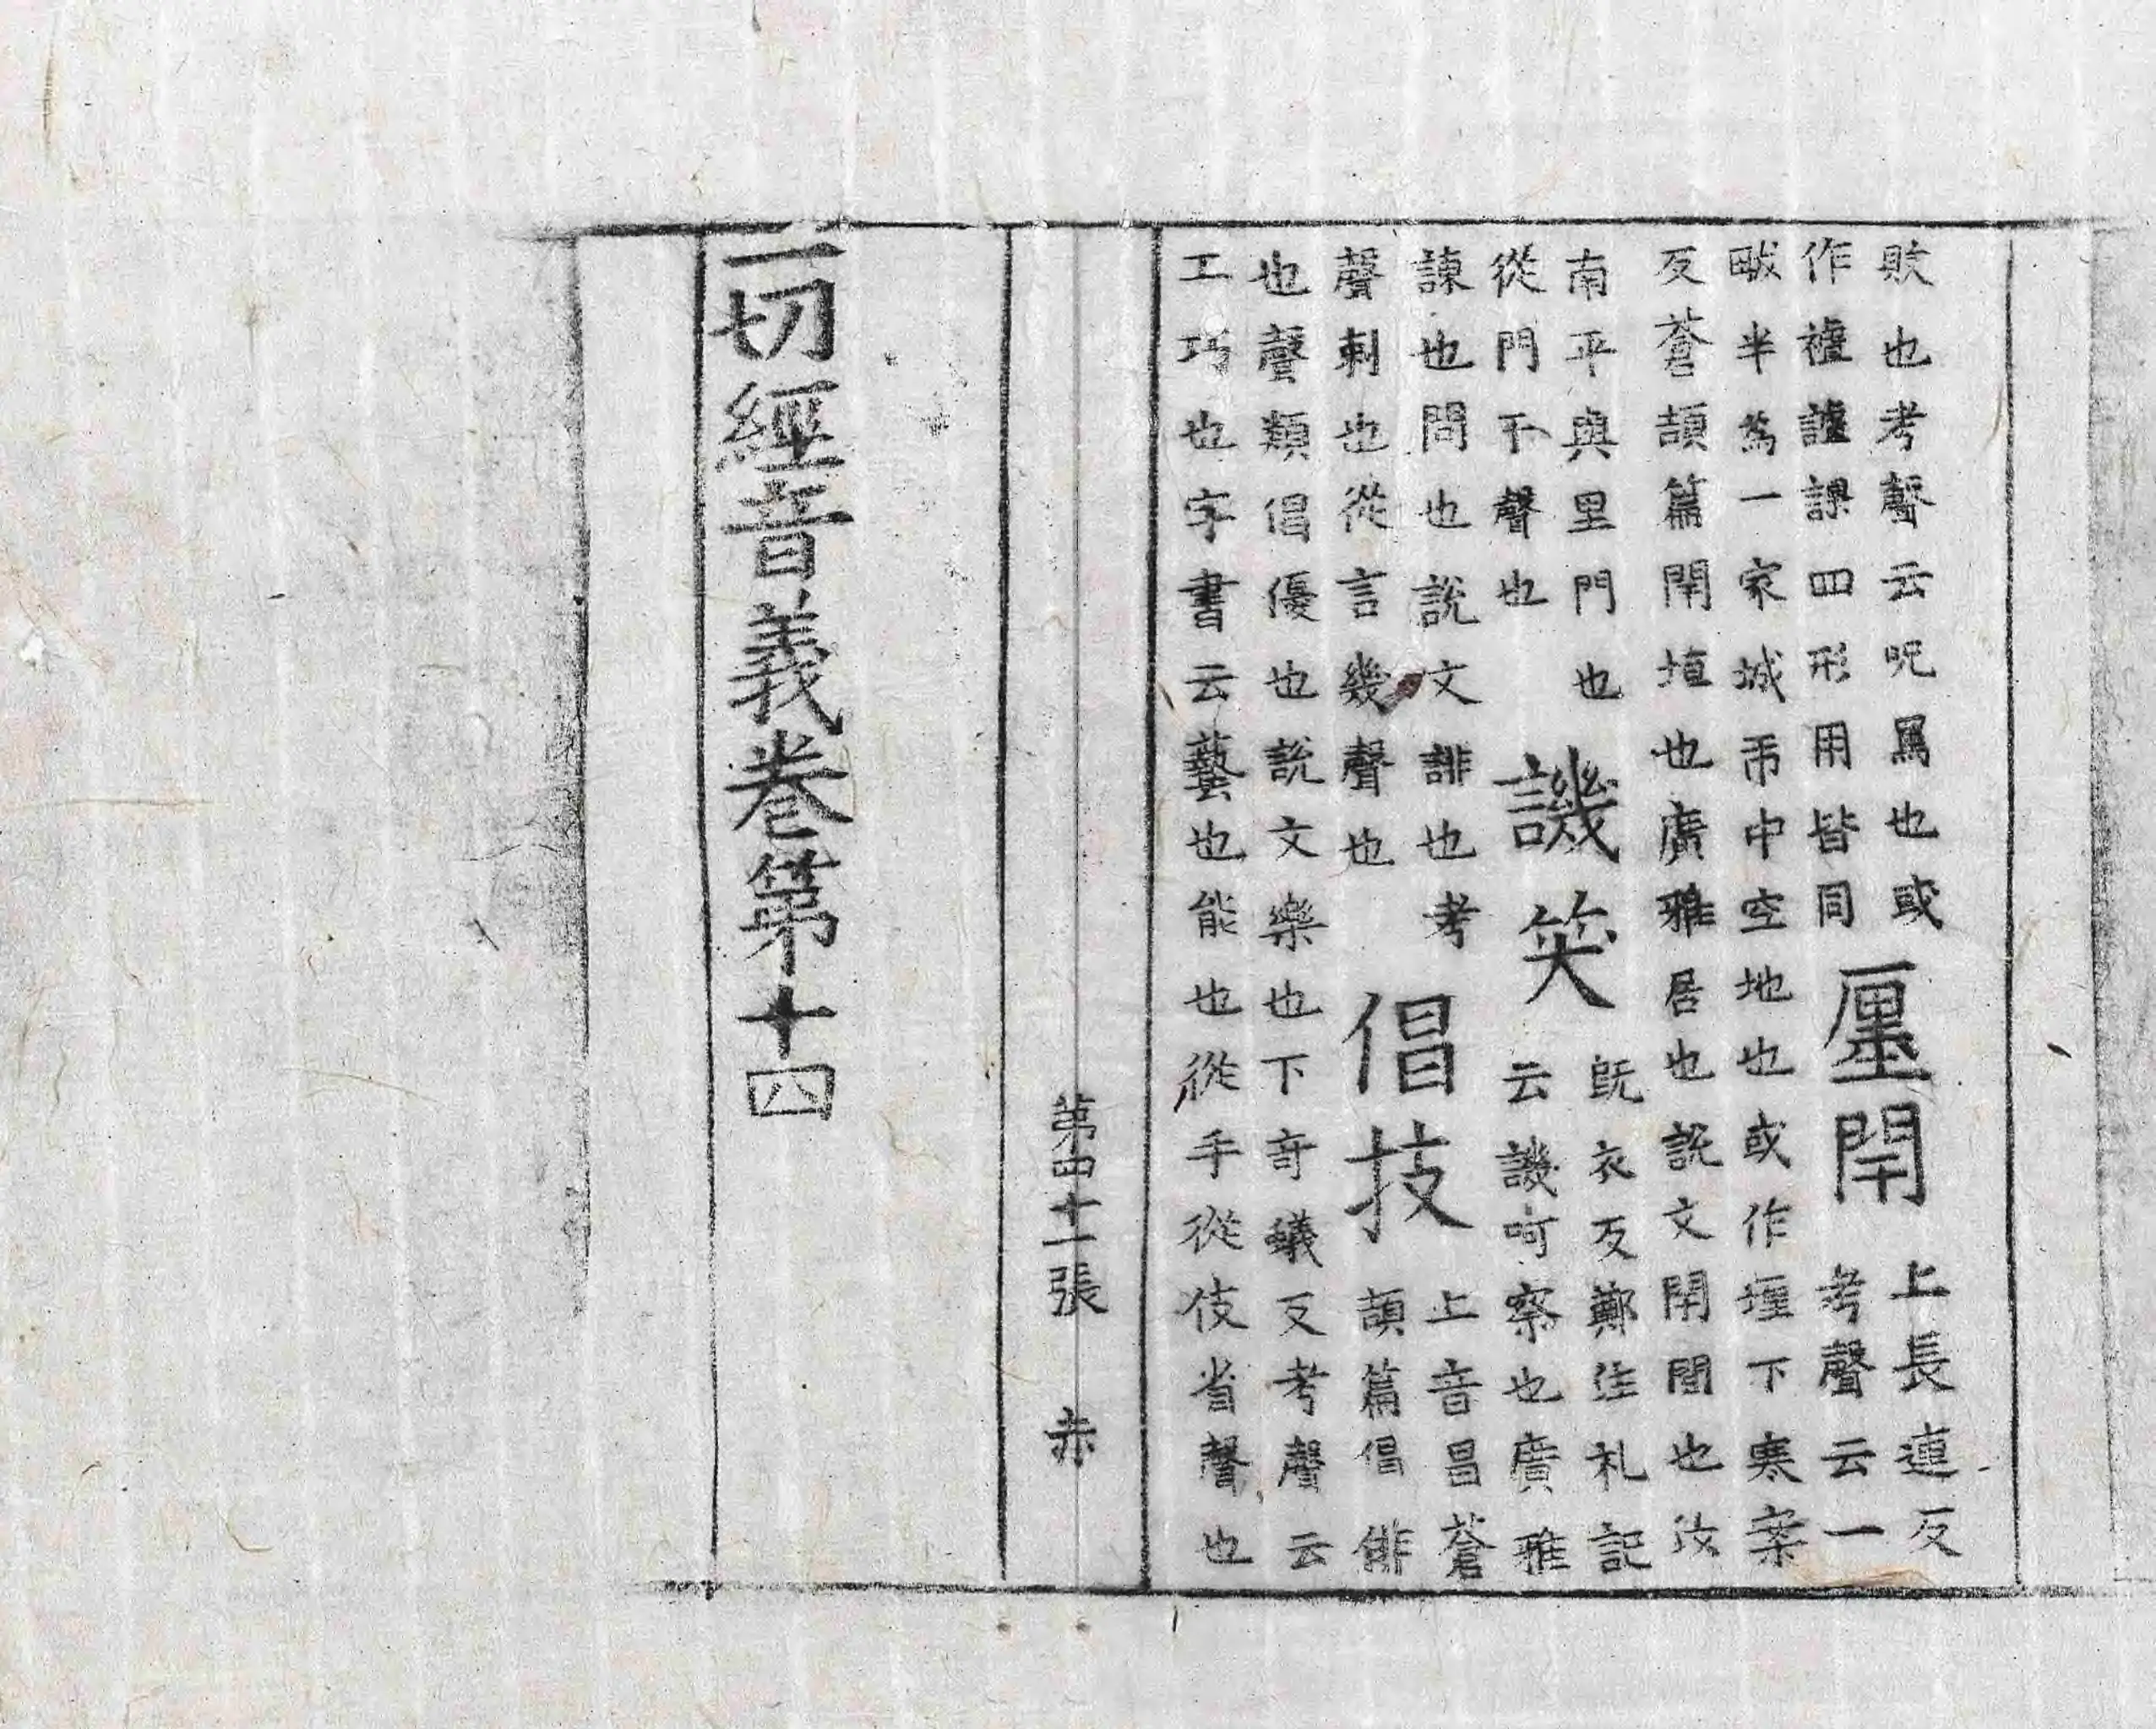 也考聲云呪罵也或
作四形用皆同
廛閈
上長連反
考聲云一
畝半爲一家城市中空地也或作㕓下寒案
反蒼頡篇閈垣也廣雅居也說文閈閭也汝
南平與里門也
從門干聲也
譏笑
旣衣反鄭注礼記
云譏呵察也廣雅
諫也問也說文誹也考
聲刺也從言幾聲也
倡技
上音昌蒼
頡篇倡俳
也聲類倡優也說文樂也下奇蟻反考聲云
工巧也字書云藝也能也從手從伎省聲也
第四十一張 赤
一切經音義卷第十四